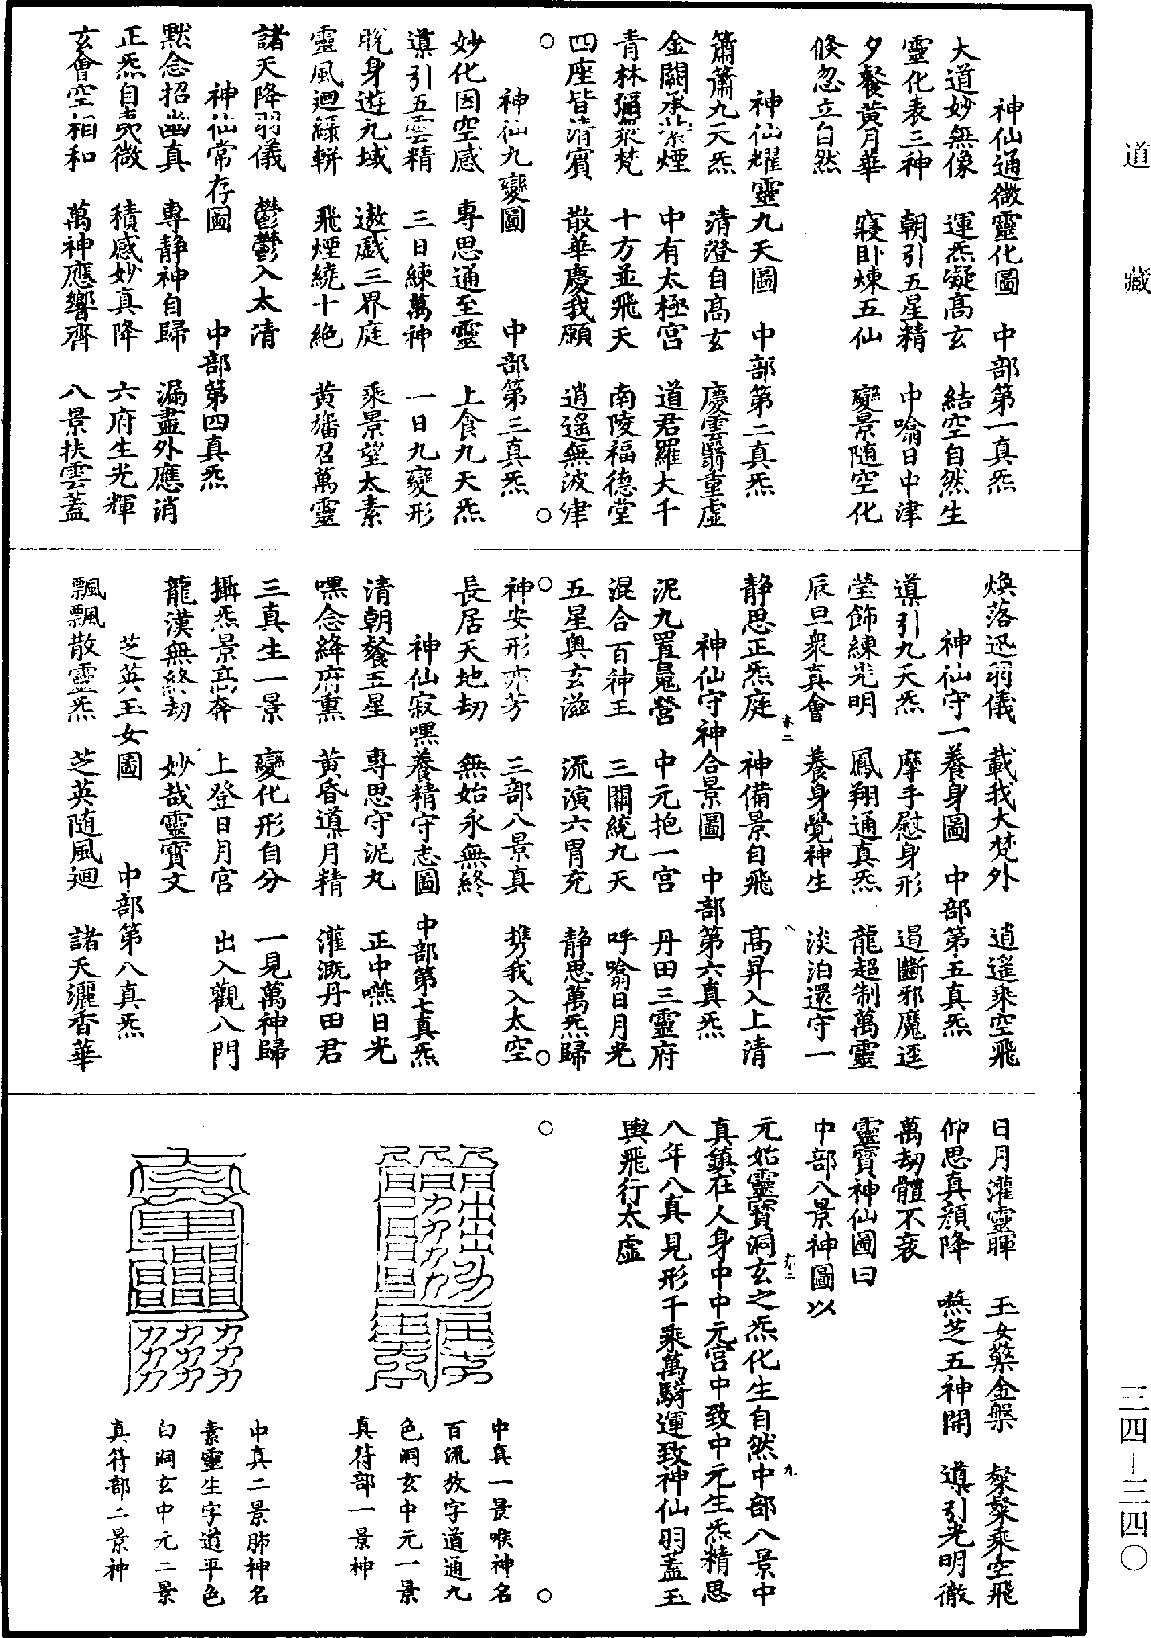 道藏
神仙通微靈化圖　中部第一真炁
大道妙無像　運炁凝高玄　結空自然生
靈化表三神　朝引五星精　中噏日中津
夕餐黃月華　寢卧煉五仙　變景随空化
倏忽立自然
神仙耀靈九天圖　中部第二真炁
簫簫九天炁　清澄自高玄　慶雲翳重虛
金闕承紫煙　中有太極宮　道君羅大千
青林彌衆梵　十方並飛天　南陵福德堂
四座皆清賓　散華慶我願　逍遙無波津
神仙九變圖　中部第三真炁
妙化因空感　專思通至靈　上食九天炁
導引五雲精　三日練萬神　一日九變形
晚身遊九域　遨戲三界庭　乘景望太素
靈風迴綠輧　飛煙繞十絕　黃旛召萬靈
諸天降羽儀　鬱鬱入太清
神仙常存圖　中部第四真炁
默念招幽真　專静神自歸　漏盡外應消
正炁自夷微　積感妙真降　六府生光輝
玄會空相和　萬神應響齊　八景扶雲蓋
煥落迅羽儀　載我大梵外　逍遙乘空飛
神仙守一養身圖　中部第五真炁
導引九天炁　摩手慰身形　遏斷邪魔逕
瑩飾練光明　鳳翔通真炁　龍超制萬靈
辰旦衆真會　養身覺神生　淡泊還守一
静思正炁庭　神備景自飛　高昇入上清
神仙守神合景圖　中部第六真炁
泥九置鬼營　中元抱一宮　丹田三靈府
混合百神王　三關統九天　呼噏日月光
五星奧玄滋　流演六胃充　静思萬炁歸
神安形亦芳　三部八景真　携我入太空
長居天地劫　無始永無終
神仙寂嘿養精守志圖　中部第七真炁
清朝餐五星　專思守泥丸　正中嚥日光
嘿念絳府熏　黃昏導月精　灌溉丹田君
三真生一景　變化形自分　一見萬神歸
攝炁景高奔　上登日月宮　出入觀八門
龍漢無終劫　妙哉靈寶文
芝英玉女圖　中部第八真炁
飄飄散靈炁　芝英随風迴　諸天灑香華
日月灌靈暉　玉女檠金槃　粲粲乘空飛
仰思真顔降　嚥芝五神開　導引光明徹
萬劫體不衰
靈寶神仙圖曰
中部八景神圖以
元始靈寶洞玄之炁化生自然中部八景中
真鎮在人身中中元宮中致中元生炁精思
八年八真見形千乘萬騎運致神仙羽蓋玉
輿飛行太虛
中真一景喉神名
百流放字道通九
色洞玄中元一景
真符部一景神
中真二景肺神名
素靈生字道平色
白洞玄中元二景
真符部二景神
三四—三四〇